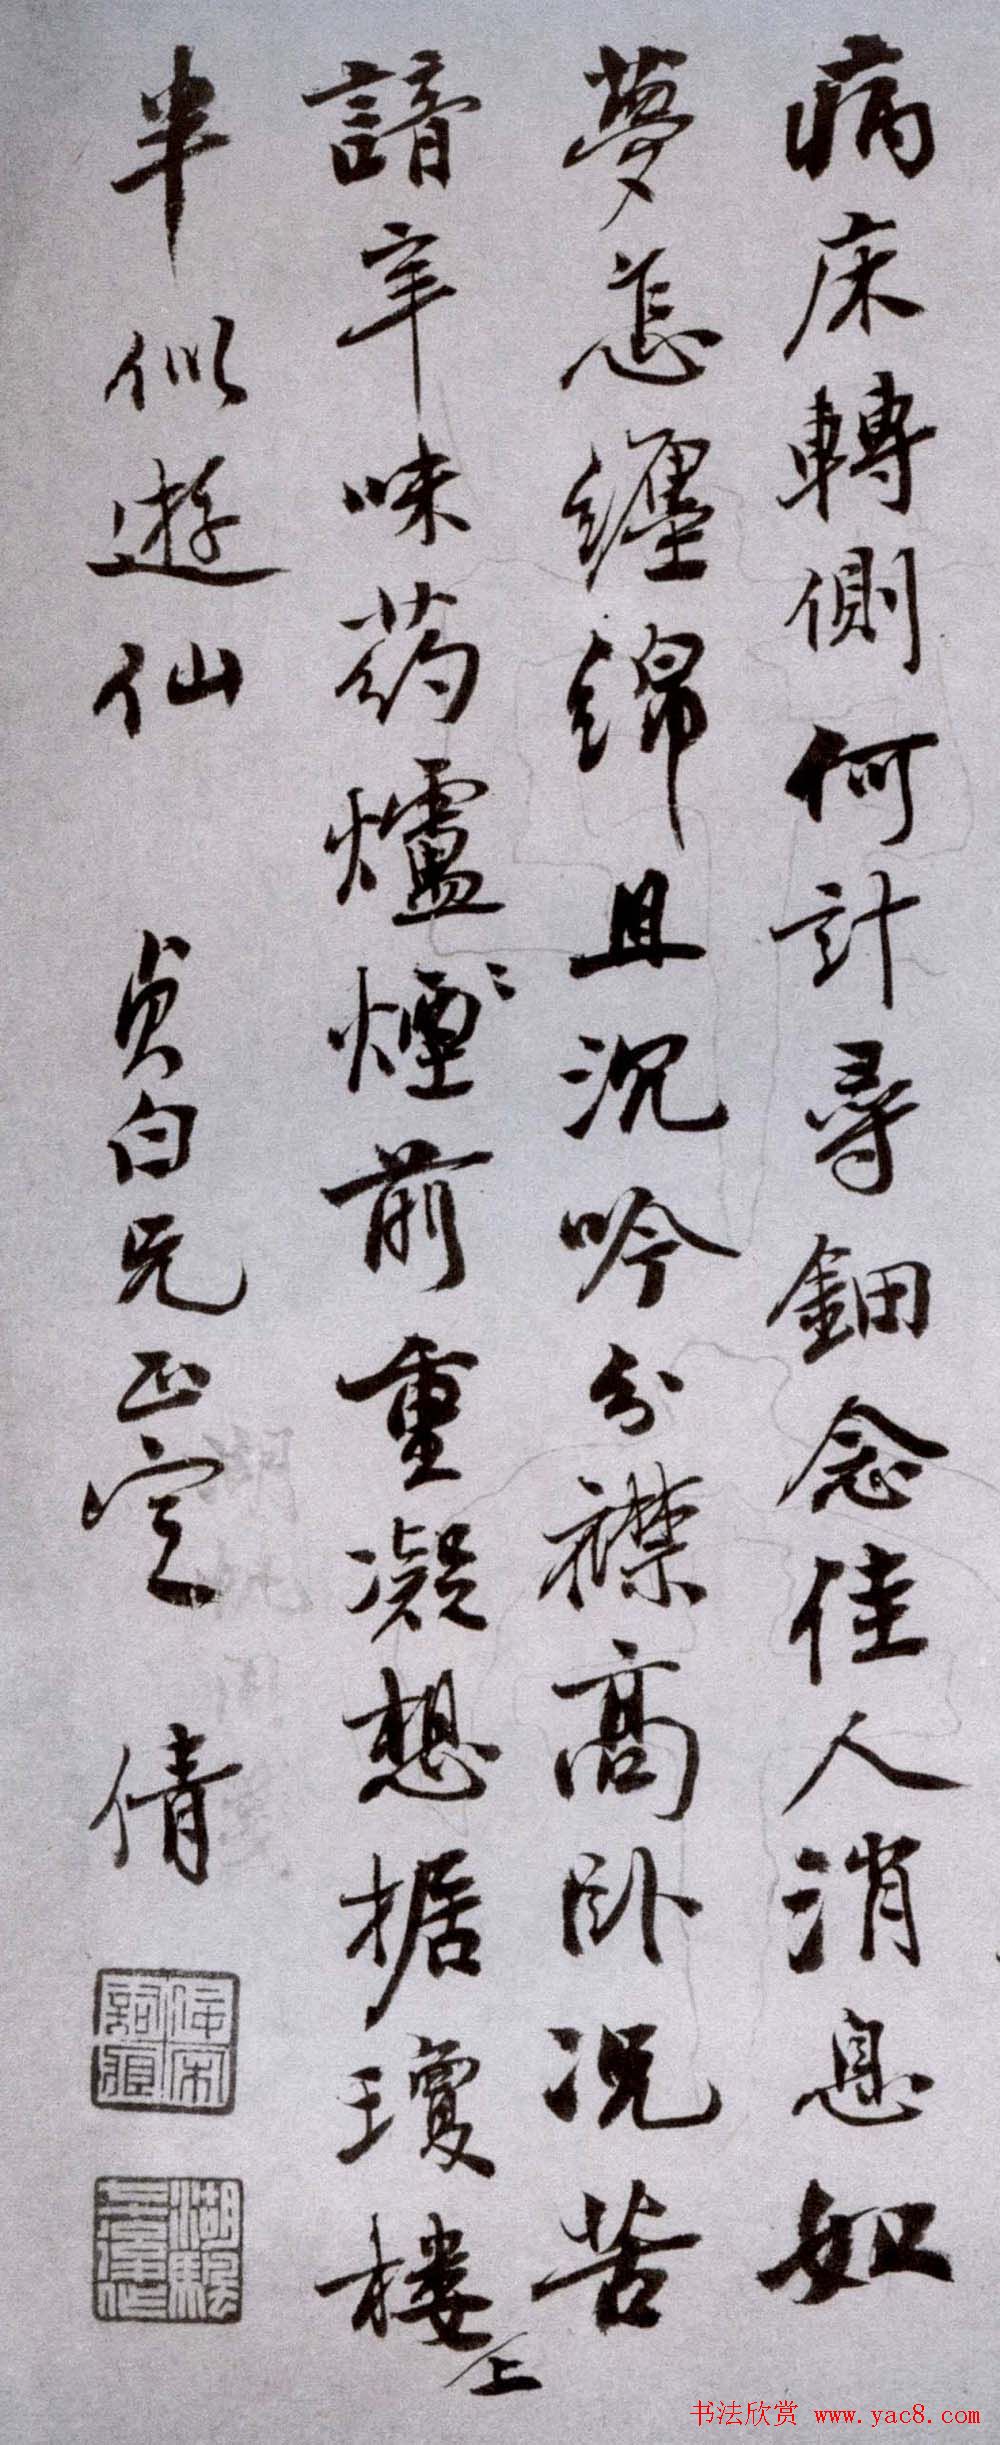 病床轉側何計尋鈿念佳人消息如
夢怎纏綿且沉吟分襟高卧况苦
諳辛味药爐煙〻前重凝想据瓊樓上
半似遊仙 貞白兄正定 倩
书法欣赏 www.yac8.com